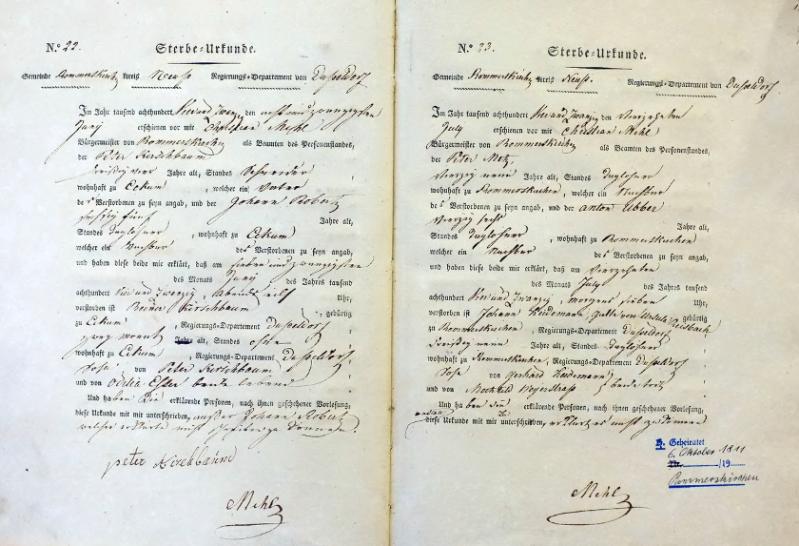 N.º 22. Sterbe-Urkunde.
Gemeinde Rommerskirchen Kreis Neuss Regierungs-Departement von Dusseldorf
Im Jahr tausend achthundert vier und Zwanzig den acht und zwanzigsten
Juny erschienen vor mir Christian Mehl
Bürgermeister von Rommerskirchen als Beamten des Personenstandes,
der Peter Kirschbaum
dreißig vier Jahre alt, Standes Schneider
wohnhaft zu Eckum, welcher ein Vater
des Verstorbenen zu seyn angab, und der Johann Robertz
fünf Jahre alt,
Standes Taglohner, wohnhaft zu Eckum
welcher ein Nachbar des Verstorbenen zu seyn angab,
und haben diese beide mir erklärt, daß am sieben und zwanzigsten
des Monats Juny des Jahres tausend
achthundert vier und zwanzig, Abends eilf Uhr,
verstorben ist Kirschbaum gebürtig
zu Eckum, Regierungs-Departement Dusseldorf
zwey Monat Jahre alt, Standes ohne
wohnhaft zu Eckum, Regierungs-Departement Dusseldorf,
Sohn von Peter Kirschbaum
und von Odilia Esser beide lebend
Und haben die erklärende Personen, nach ihnen geschehener Vorlesung,
diese Urkunde mit mir unterschrieben, außer Johann Robertz
welcher erklärte nicht
peter Kirchbaum
Mehl
N.º 23. Sterbe-Urkunde.
Gemeinde Rommerskirchen Kreis Neuss. Regierungs-Departement von Dusseldorf
Im Jahr tausend achthundert vier und Zwanzig den vierzehnten
July erschienen vor mir Christian Mehl
Bürgermeister von Rommerskirchen als Beamten des Personenstandes,
der Peter Metz
vierzig neun Jahre alt, Standes Taglohner
wohnhaft zu Rommerskirchen, welcher ein Nachbar
des Verstorbenen zu seyn angab, und der Anton Ubber
vierzig sechs Jahre alt,
Standes Taglohner, wohnhaft zu Rommerskirchen
welcher ein Nachbar des Verstorbenen zu seyn angab,
und haben diese beide mir erklärt, daß am vierzehnten
des Monats July des Jahres tausend
achthundert vier und Zwanzig, morgens sieben Uhr,
verstorben ist Johann Heidemann, Gatte von Ursula Reisbach gebürtig
zu Rommerskirchen, Regierungs-Departement Dusseldorf
dreißig neun Jahre alt, Standes Taglohner
wohnhaft zu Rommerskirchen, Regierungs-Departement Dusseldorf
Sohn von Gerhard Heidemann
und von beide todt
Und haben die erklärende Personen, nach ihnen geschehener Vorlesung,
diese Urkunde mit mir unterschrieben, erklärt es nicht zu können
Geheiratet
6. Oktober 1811
19
Rommerskirchen
Mehl